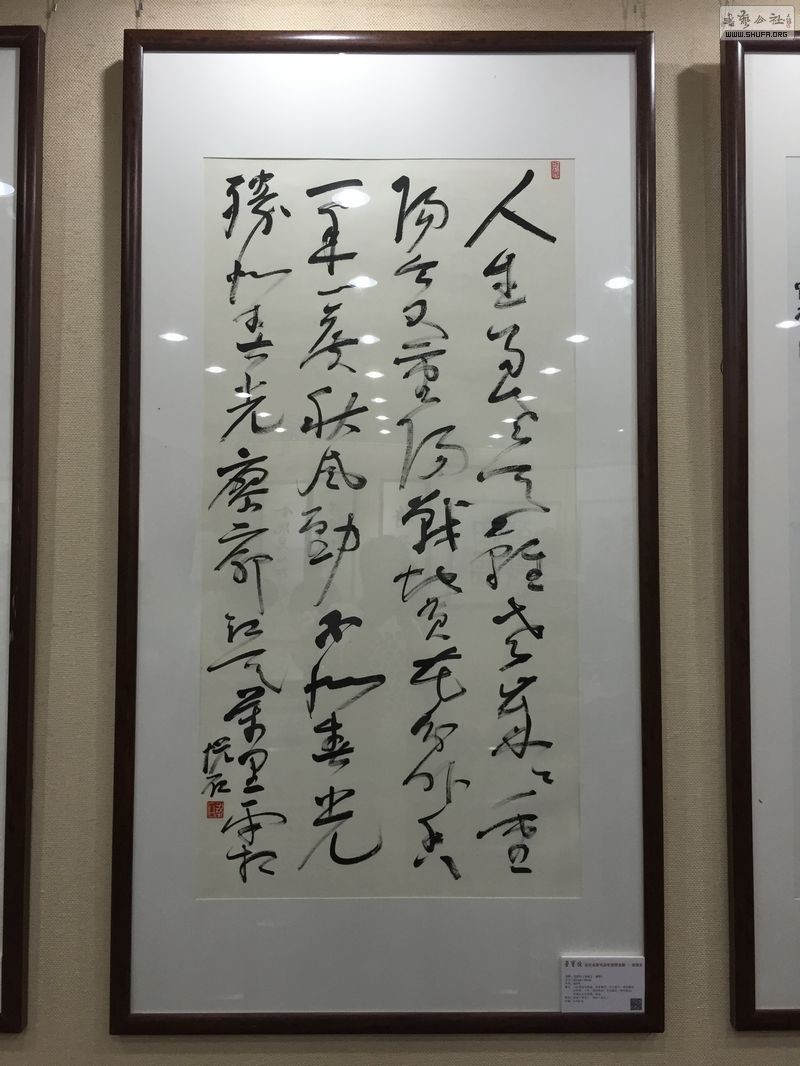 人生易老天难老岁岁重
阳今又重阳战地黄花分外香
一年一度秋风劲不似春光
胜似春光廖廓江天万里霜
石
荣宝斋
WWW.SHUFA.ORG